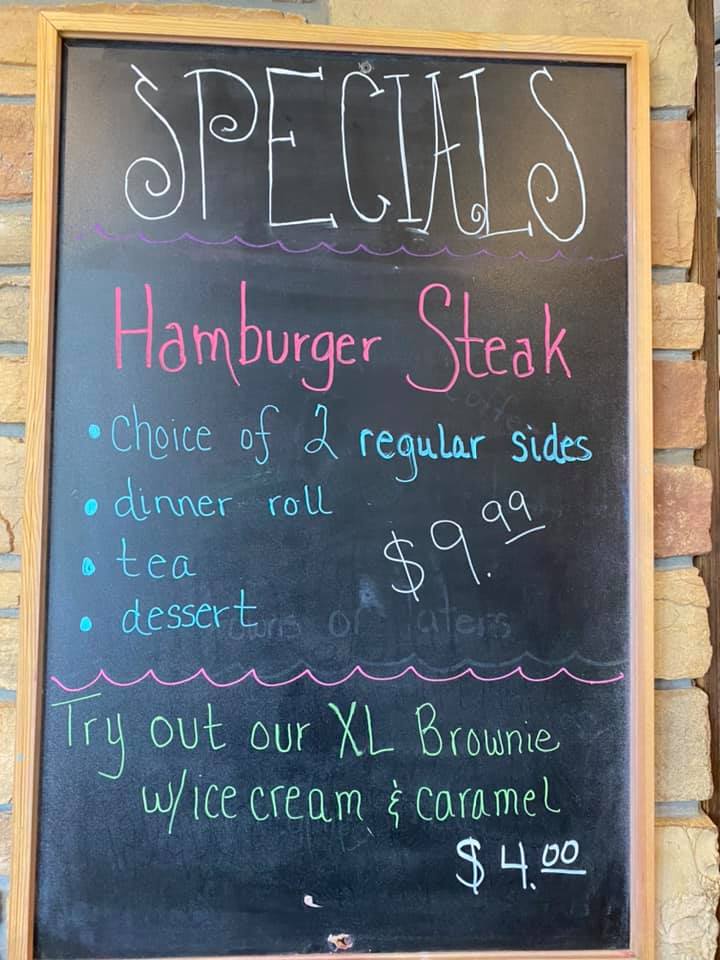 SPECIALS
Hamburger Steak
• Choice of 2 regular sides
• dinner roll
• tea
• dessert
$9.99
Try out our XL Brownie
w/ice cream & caramel
$4.00